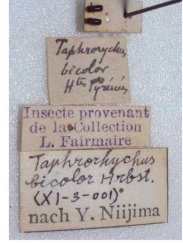 Taphrorychus
bicolor
Htes Pyrénées
Insecte provenant
de la Collection
L. Fairmaire
Taphrorhychus
bicolor Hrbst.
(XI-3-001)
nach Y. Niijima